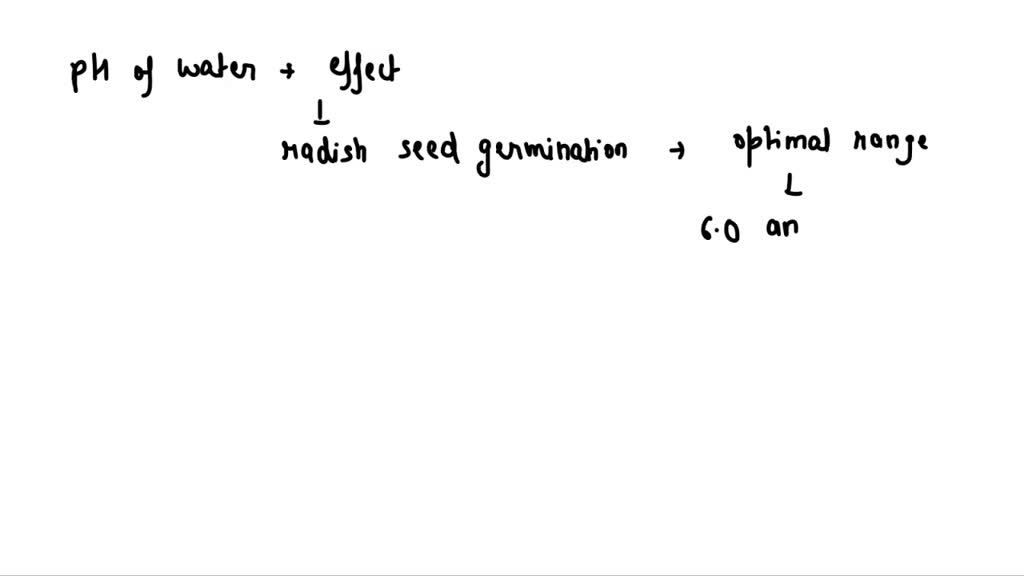 pH of water → effect
radish seed germination → optimal range
6.0 an